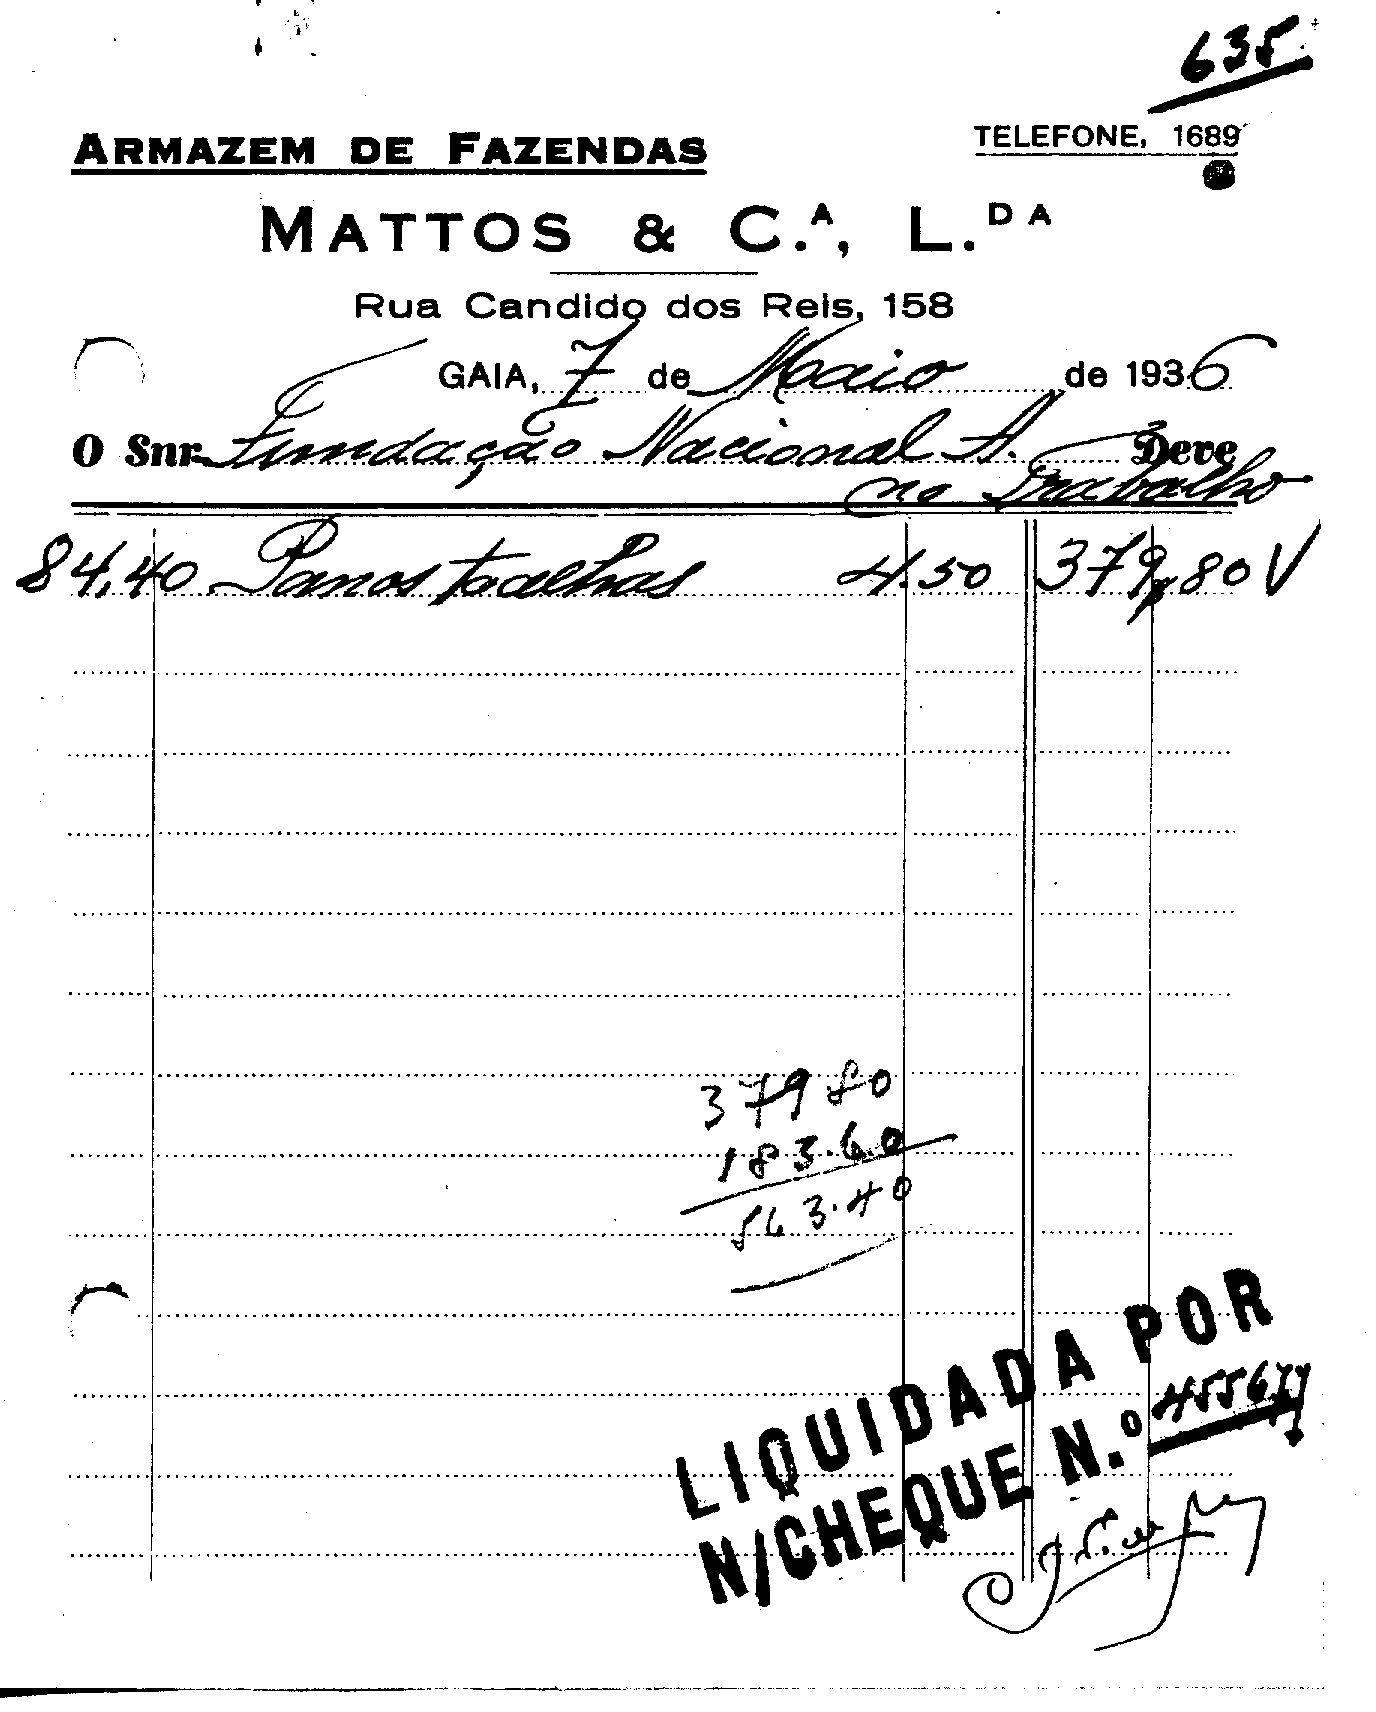 635
ARMAZEM DE FAZENDAS
TELEFONE, 1689
MATTOS & C.A, L.DA
Rua Candido dos Reis, 158
GAIA, 7 de Maio de 1936
O Snr. Fundação Nacional A. Deve
no Trabalho
84,40 Panos toalhas 4.50 379,80 V
379 80
183.60
563.40
LIQUIDADA POR
N/CHEQUE N.º 455677